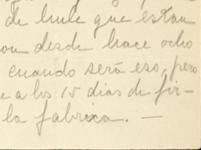 de hule que estan
on desde hace ocho
cuando será eso, pero
e a los 15 dias de fir-
la fabrica. —